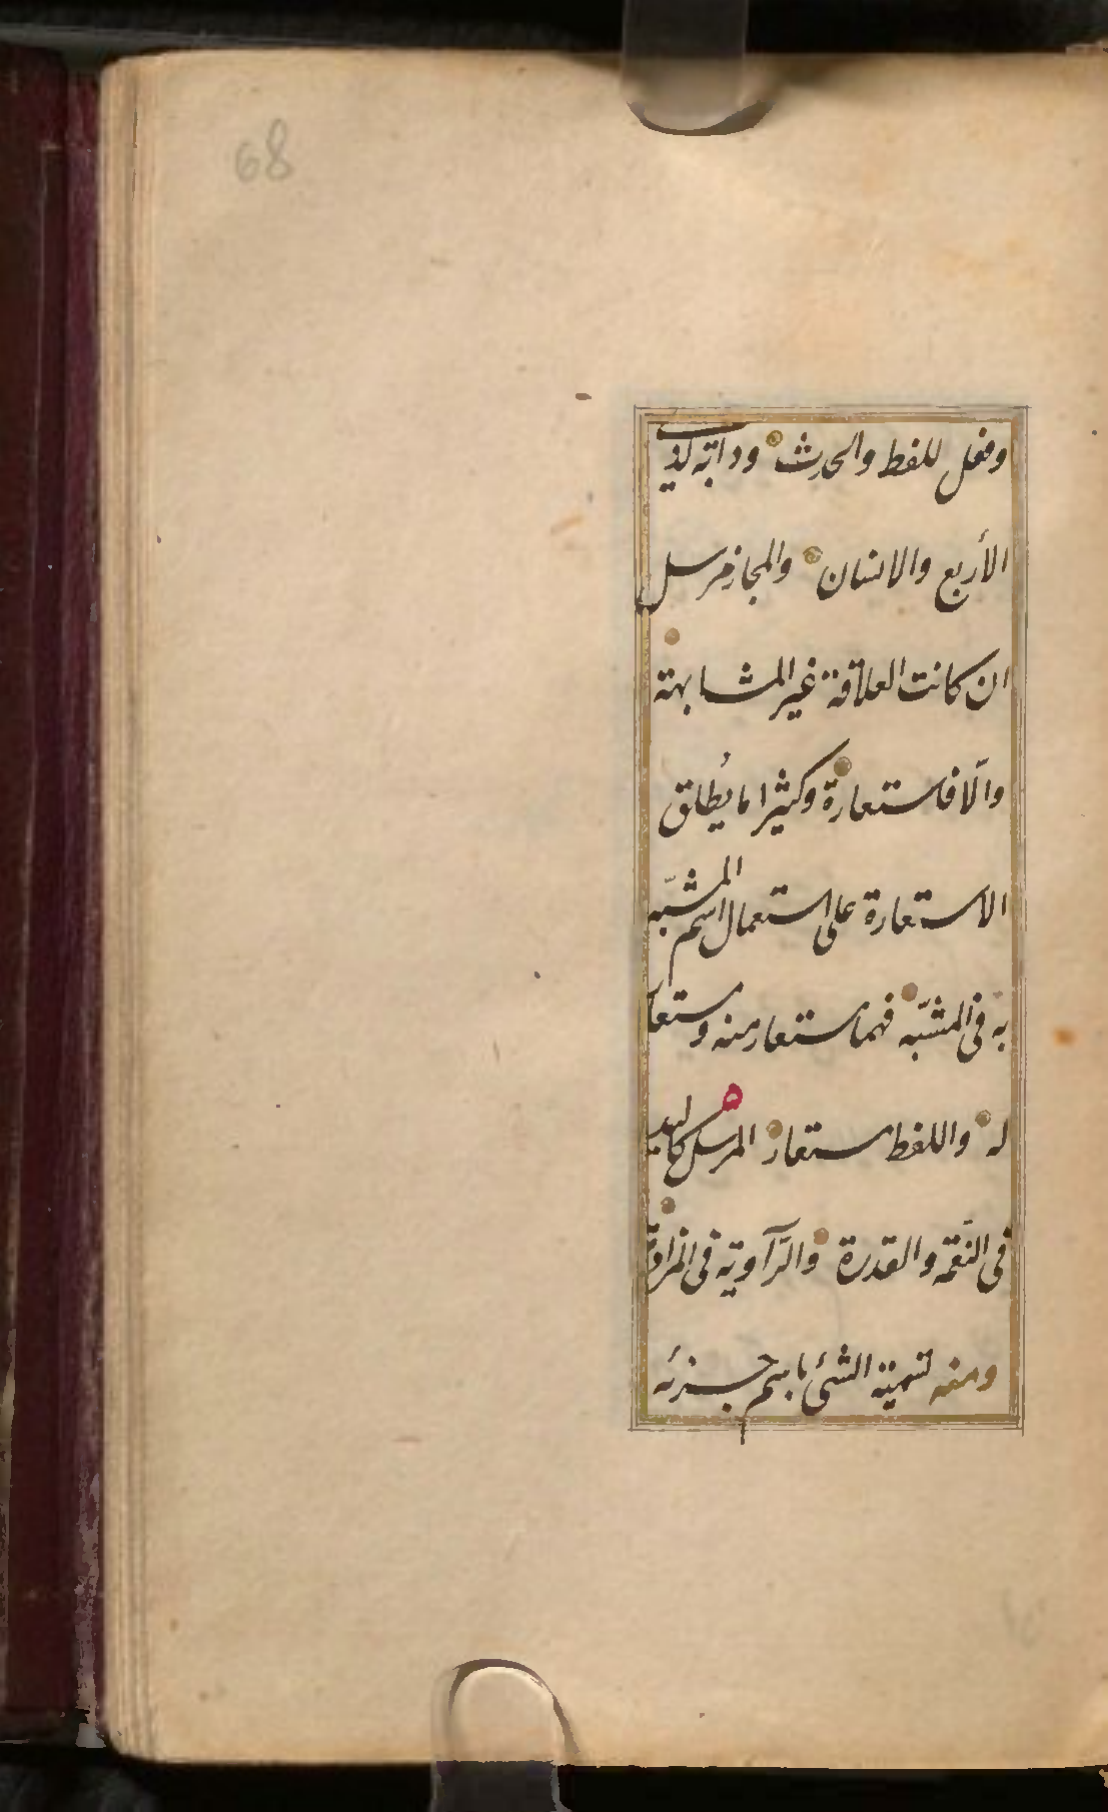 68
وفعل للفظ والحدث ودابة لذي
الأربع والانسان والمجاز مرسل
ان كانت العلاقة غير المشابهة
والّا فاستعارة وكثيرا ما يُطلق
الاستعارة على استعمال اسم المشبّه
به في المشبّه فهما مستعار منه ومستعار
له واللفظ مستعار المرسل كاليد
في النّعمة والقدرة والرّاوية في المزادة
ومنه تسمية الشئ باسم جزئه